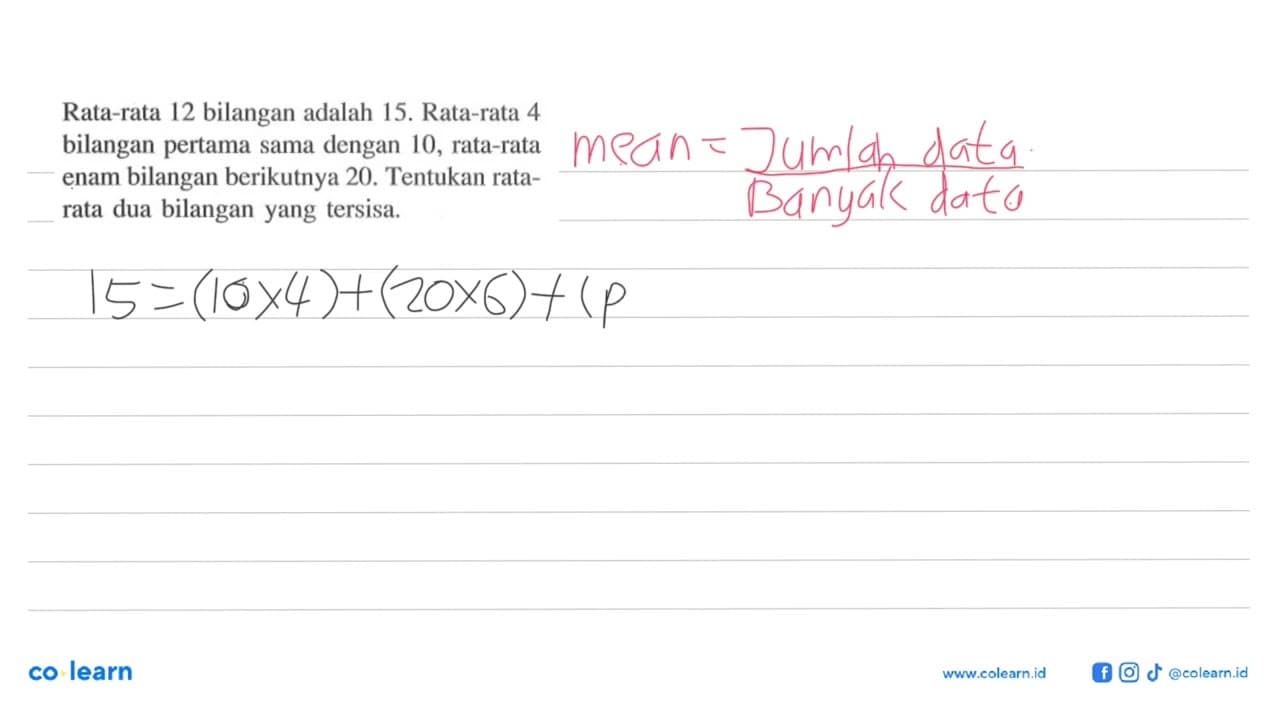 Rata-rata 12 bilangan adalah 15. Rata-rata 4
bilangan pertama sama dengan 10, rata-rata
enam bilangan berikutnya 20. Tentukan rata-
rata dua bilangan yang tersisa.
mean = Jumlah data
Banyak data
15=(10×4)+(20×6)+(p
co learn
www.colearn.id
@colearn.id